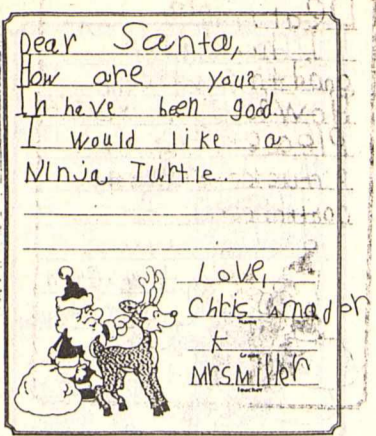 Dear Santa,
How are you?
Ih have been good.
I would like a
Ninja Turtle.
Love,
Chris Amador
Name
K
Grade
Mrs. Miller
Teacher